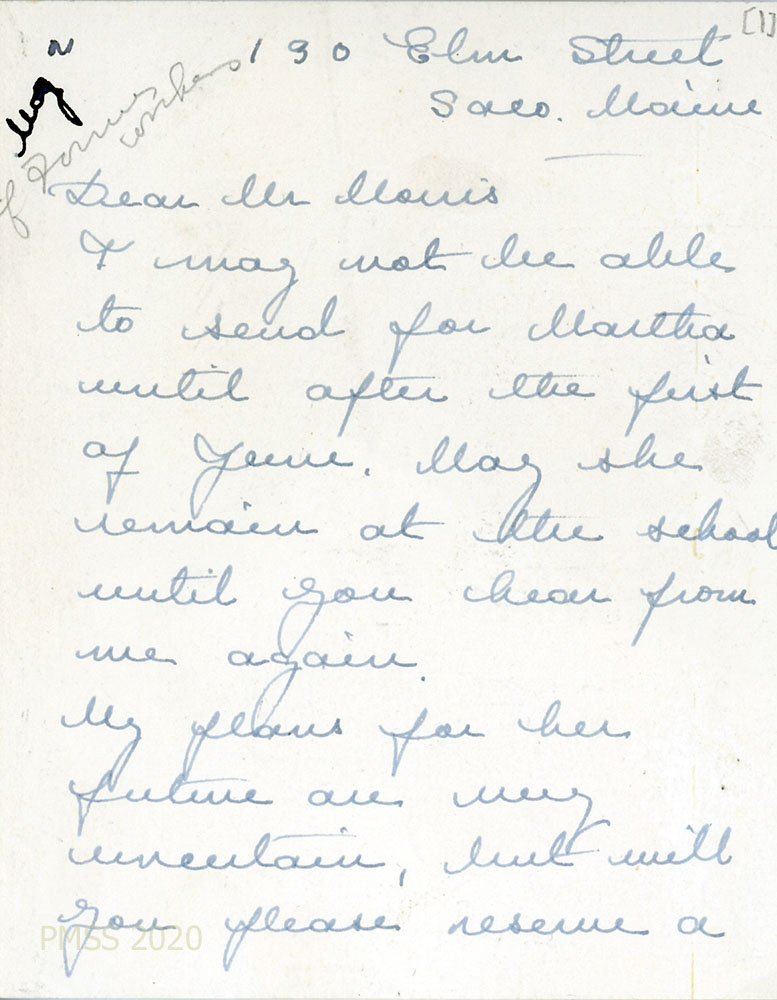 [1]
of Former
workers
130 Elm Street
Saco. Maine
Dear Mr Morris
I may not be able
to send for Martha
until after the first
of June. May she
remain at the school
until you hear from
me again.
My plans for her
future are very
uncertain, but will
you please reserve a
PMSS 2020